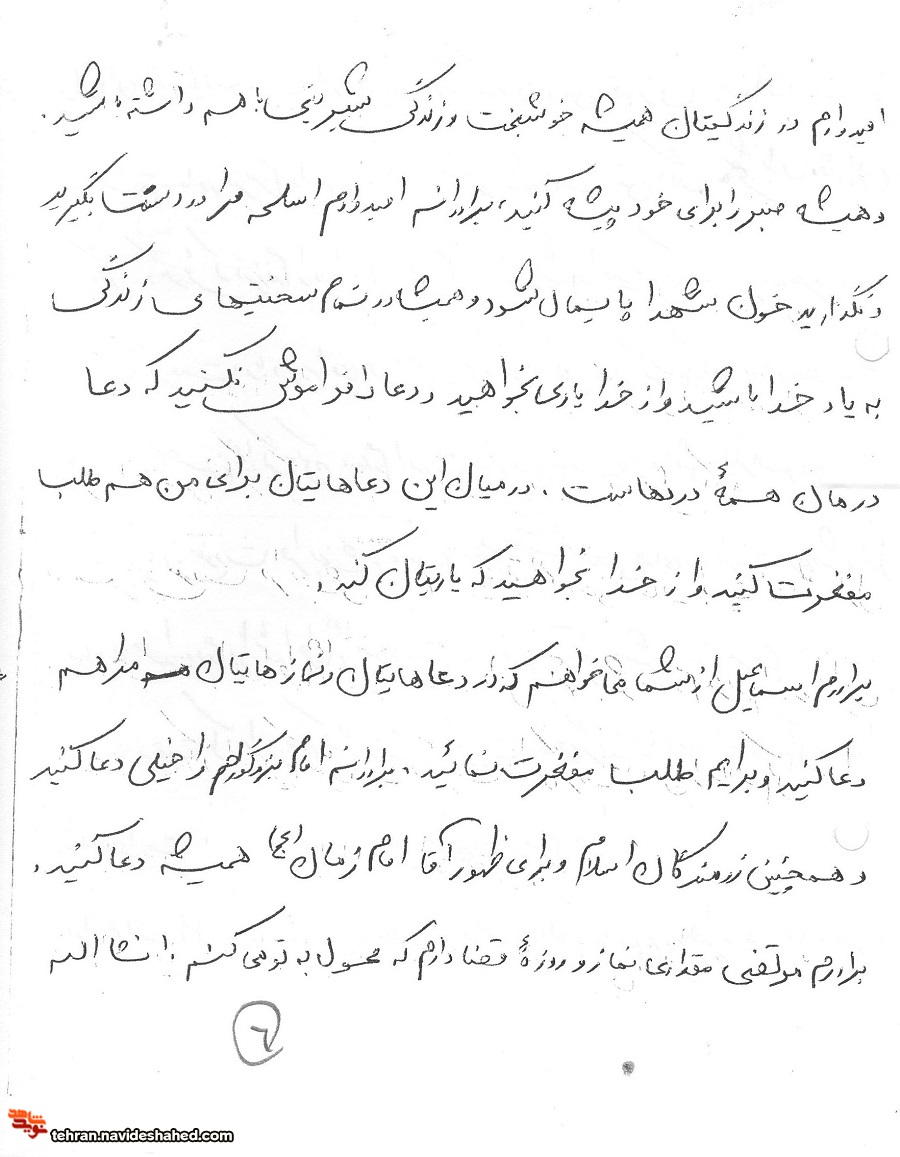 امیدوارم در زندگیتان همیشه خوشبخت و زندگی شیرینی با هم داشته باشید.
و همیشه صبر را برای خود پیشه کنید، برادرانه امیدوارم اسلحه مرا در دست بگیرید
و نگذارید خون شهدا پایمال شود و همیشه در تمام سختیهای زندگی
به یاد خدا باشید و از خدا یاری بخواهید و دعا را فراموش نکنید که دعا
درمان همهٔ دردهاست. در میان این دعاهایتان برای من هم طلب
مغفرت کنید و از خدا بخواهید که یاریتان کند.
برادرم اسماعیل از شما می‌خواهم که در دعاهایتان و نمازهایتان مرا هم
دعا کنید و برایم طلب مغفرت نمائید. برادرانه امام بزرگوارم را خیلی دعا کنید
و همچنین رزمندگان اسلام و برای ظهور آقا امام زمان (عج) همیشه دعا کنید.
برادرم مرتضی مقداری نماز و روزهٔ قضا دارم که محول به تو می‌کنم. انشاالله
۶
نوید شاهد
tehran.navideshahed.com